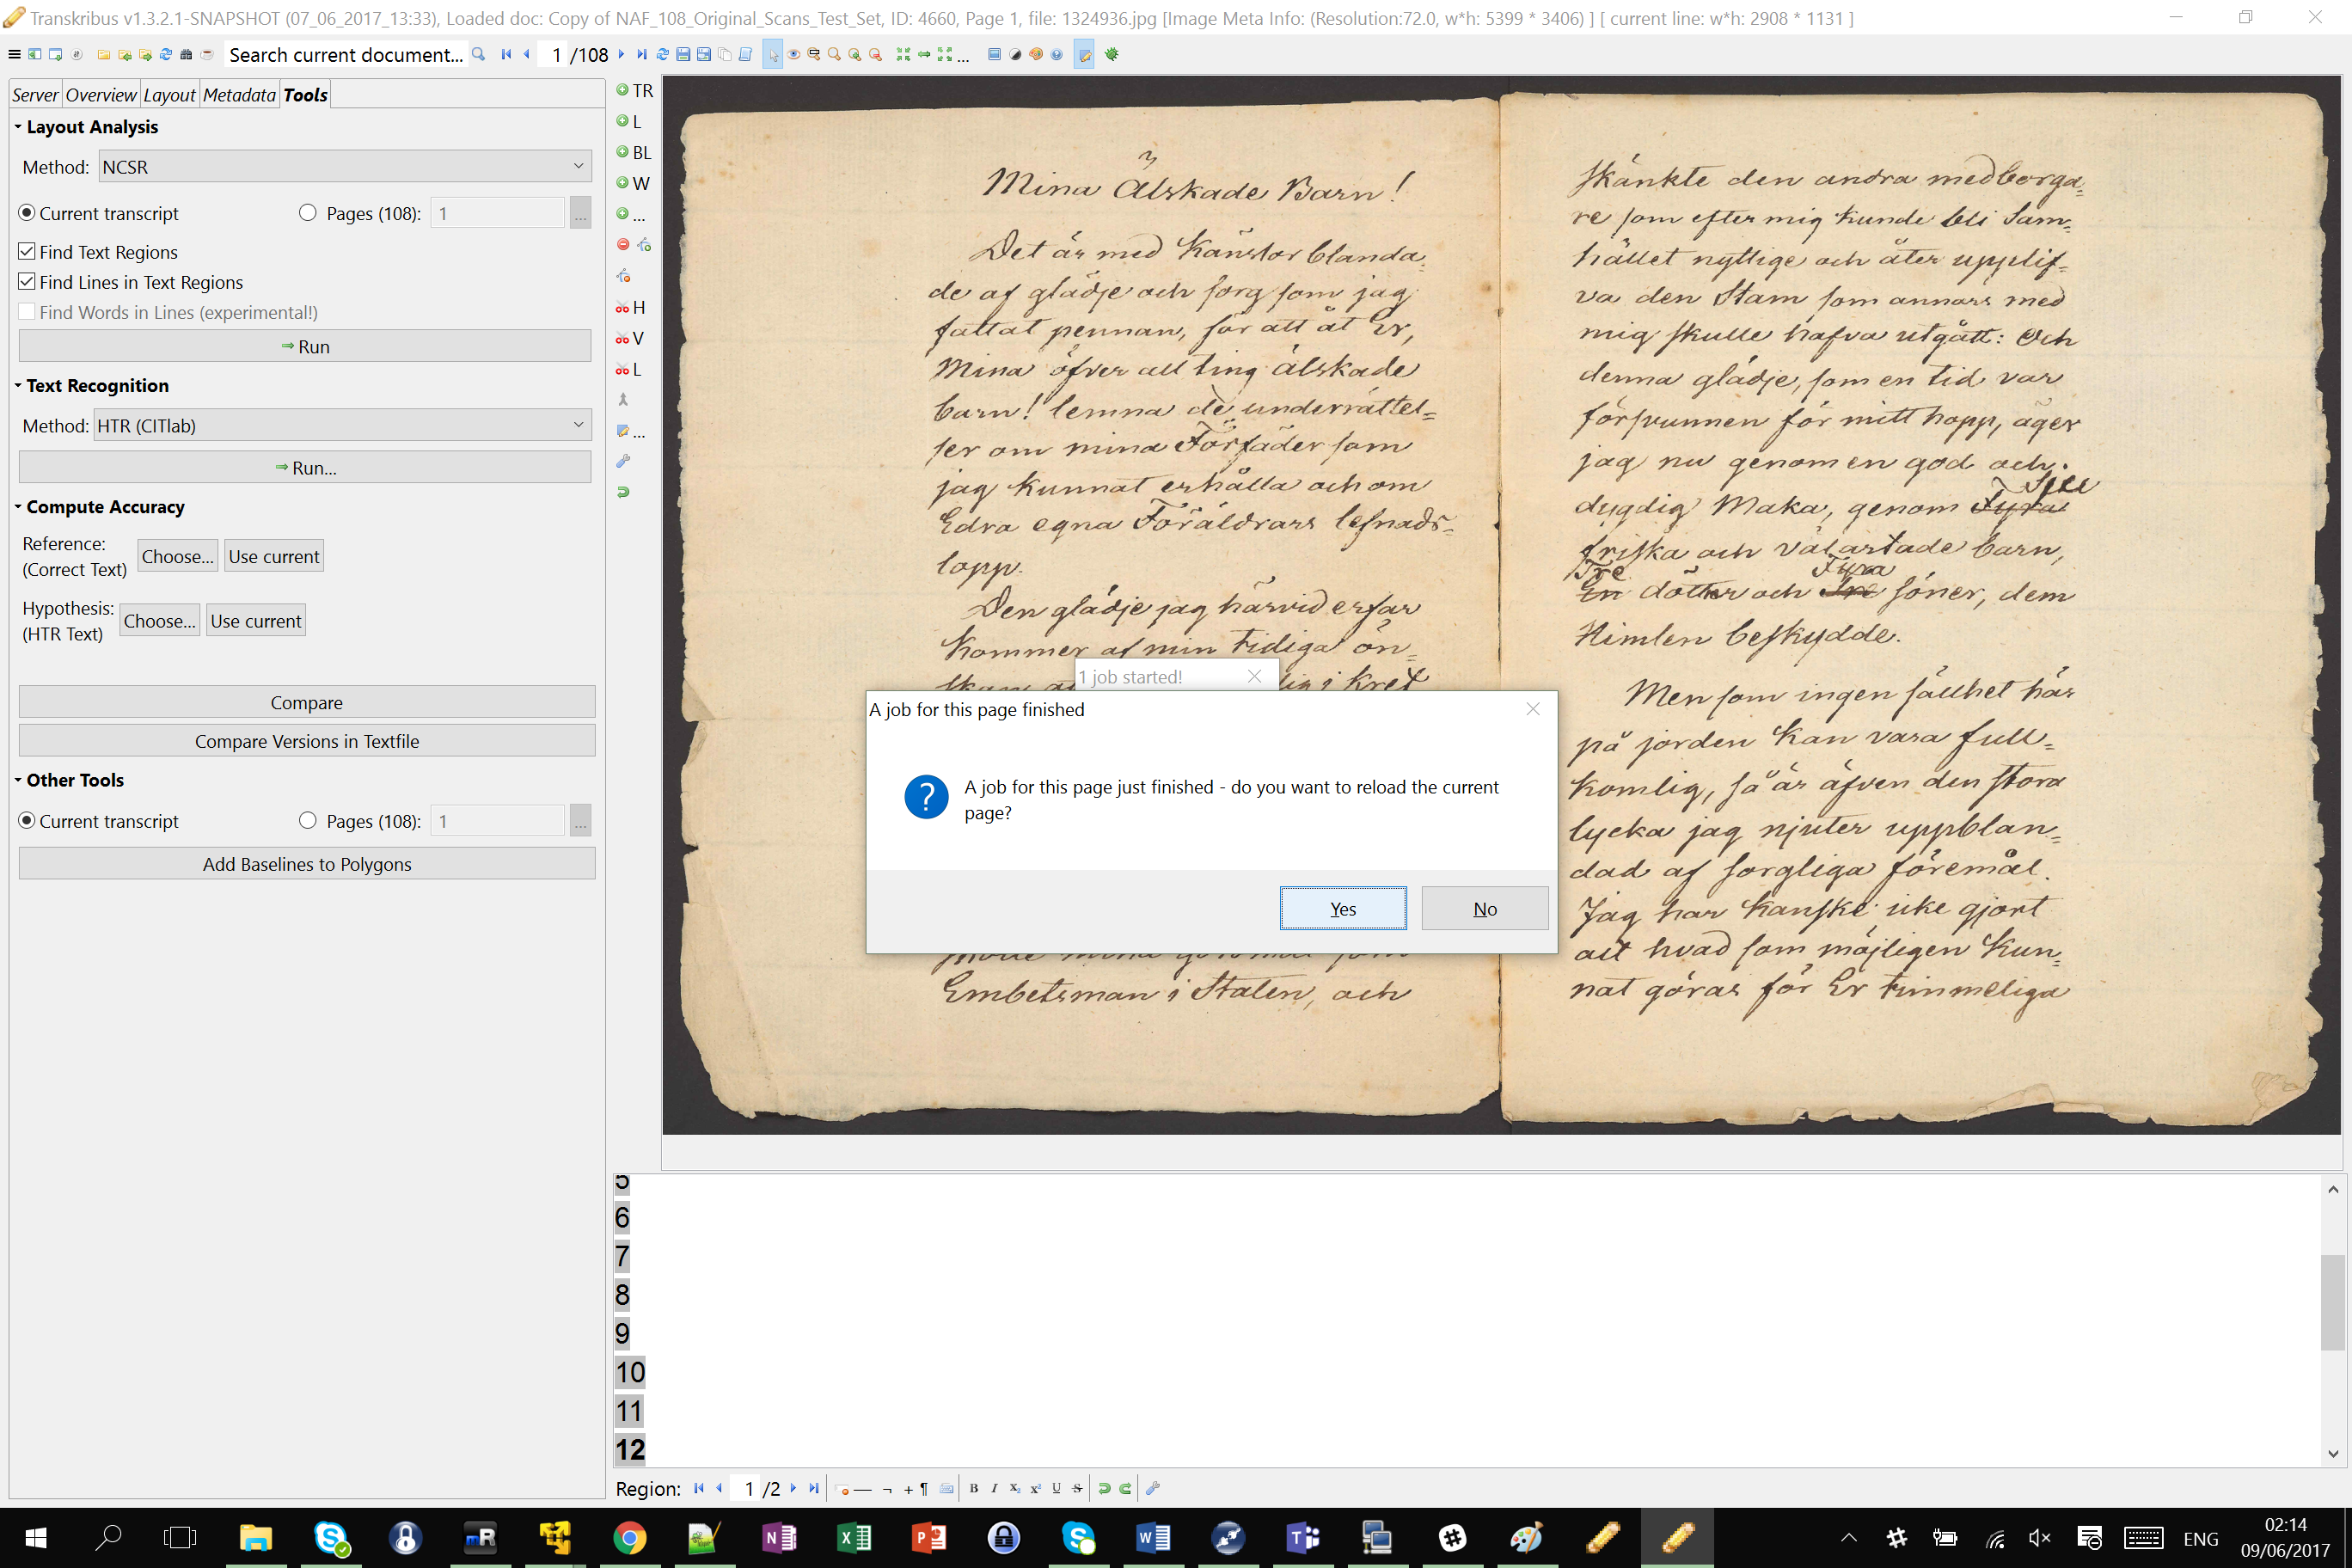 Transkribus v1.3.2.1-SNAPSHOT (07_06_2017_13:33), Loaded doc: Copy of NAF_108_Original_Scans_Test_Set, ID: 4660, Page 1, file: 1324936.jpg [Image Meta Info: (Resolution:72.0, w*h: 5399 * 3406) ] [ current line: w*h: 2908 * 1131 ]
Search current document... 1 /108 ...
Server Overview Layout Metadata Tools
Layout Analysis
Method: NCSR
Current transcript Pages (108): 1 ...
Find Text Regions
Find Lines in Text Regions
Find Words in Lines (experimental!)
Run
Text Recognition
Method: HTR (CITlab)
Run...
Compute Accuracy
Reference:
(Correct Text)
Choose... Use current
Hypothesis:
(HTR Text)
Choose... Use current
Compare
Compare Versions in Textfile
Other Tools
Current transcript Pages (108): 1 ...
Add Baselines to Polygons
TR
L
BL
W
...
H
V
L
...
Mina Älskade Barn!
Det är med känslor blanda
de af glädje och sorg som jag
fattat pennan, för att åt Er,
Mina öfver allting älskade
barn! lemna de underrättel=
ser om mina Förfäder som
jag kunnat erhålla och om
Edra egna Föräldrars lefnads=
lopp.
Den glädje jag härvid erfar
kommer af min tidiga ön=
i kret
Embetsman i Staten, och
skänkte den andra medborga=
re som efter mig kunde bli Sam=
hället nyttige och åter upplif=
va den Stam som annars med
mig skulle hafva utgått: Och
denna glädje, som en tid var
försvunnen för mitt hopp, äger
jag nu genom en god och
dygdig Maka, genom Fyra
friska och välartade barn,
Tre Fyra
En döttrar och söner, dem
Himlen beskydde.
Men som ingen sällhet här
på jorden kan vara full=
komlig, så är äfven den stora
lycka jag njuter uppblan=
dad af sorgliga föremål.
Jag har kanske icke gjort
allt hvad som möjligen kun=
nat göras för Er timmeliga
1 job started!
A job for this page finished
A job for this page just finished - do you want to reload the current
page?
Yes No
5
6
7
8
9
10
11
12
Region: 1 /2 B I X₂ X² U S
ENG
02:14
09/06/2017